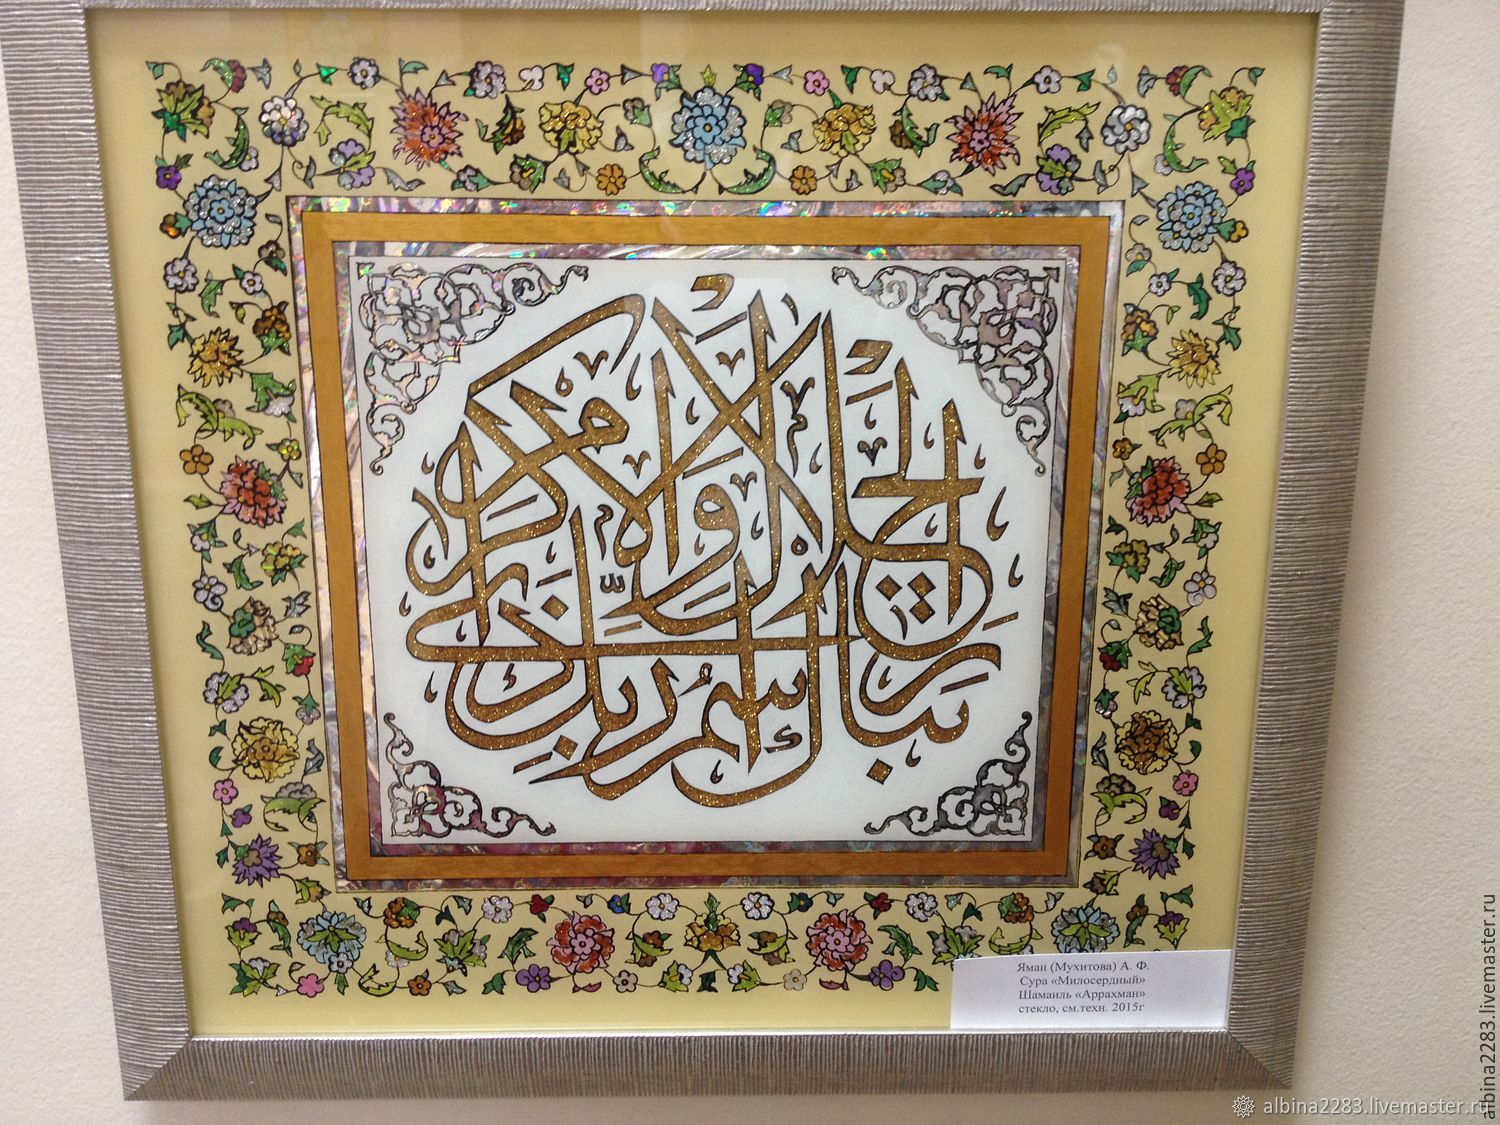 تَبَارَكَ اسْمُ رَبِّكَ ذِي الْجَلَالِ وَالْإِكْرَامِ
Яман (Мухитова) А. Ф.
Сура «Милосердный»
Шамаиль «Аррахман»
стекло, см.техн. 2015г
albina2283.livemaster.ru
albina2283.livemaster.ru